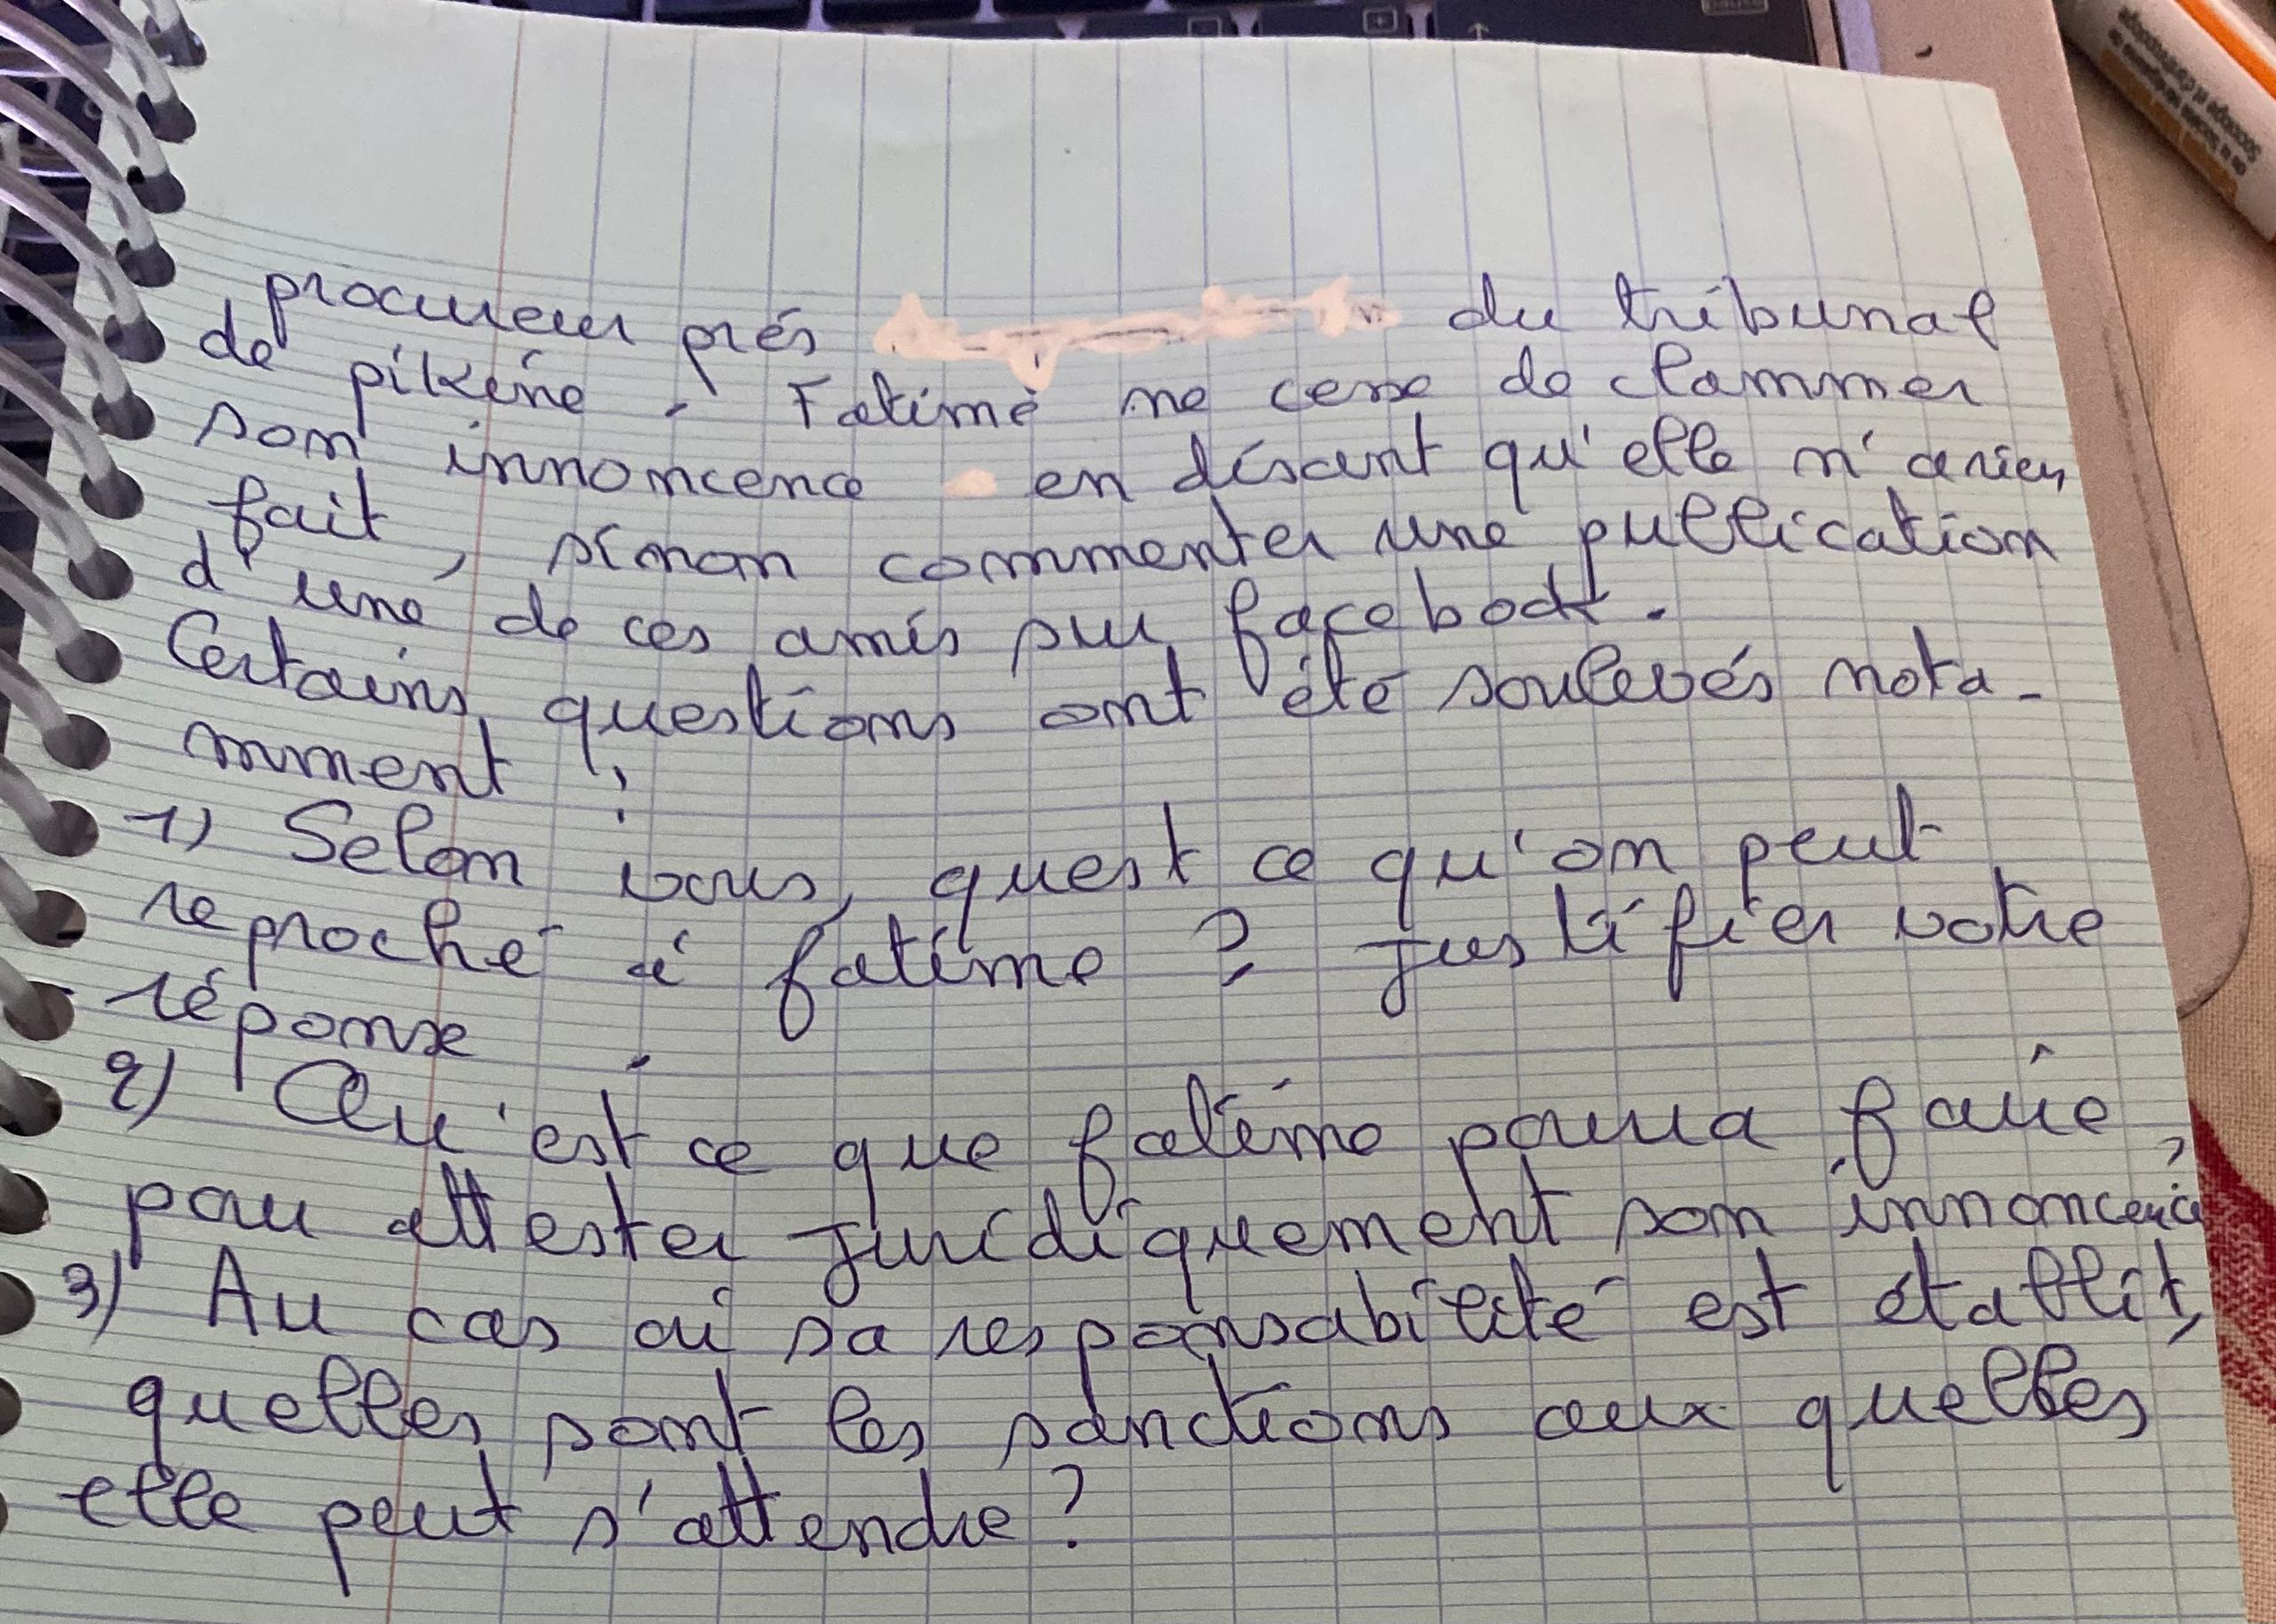 procureur prés du tribunal
de pikéne. Fatime ne cesse de clammer
son innoncence en disant qu'elle n'a rien
fait, sinon commenter une publication
d'une de ces amis sur facebook.
Certains questions ont été soulevés nota-
mment :
1) Selon vous, quest ce qu'on peut
reproché à fatime ? justifier votre
réponse.
2) Qu'est ce que fatime pourra faire,
pour attester juridiquement son innoncence
3) Au cas où sa responsabilité est établit,
quelles sont les sanctions aux quelles
elle peut s'attendre ?